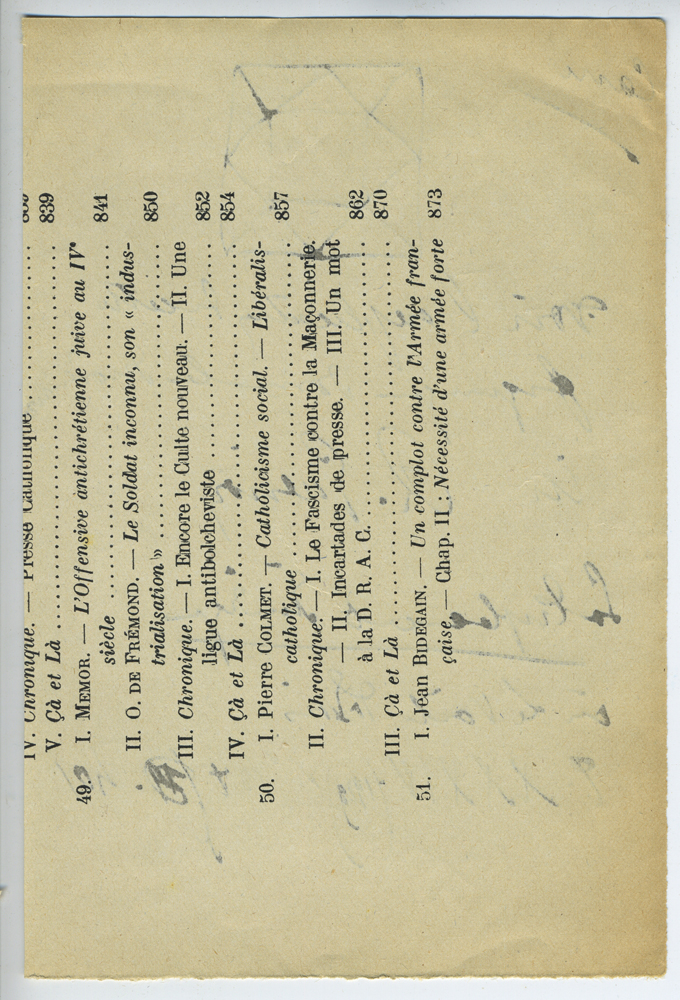 IV. Chronique. — Presse Catholique ..........
V. Çà et Là .......... 839
49. I. MEMOR. — L'Offensive antichrétienne juive au IVe
siècle .......... 841
II. O. DE FRÉMOND. — Le Soldat inconnu, son « indus-
trialisation » .......... 850
III. Chronique. — I. Encore le Culte nouveau. — II. Une
ligue antibolcheviste .......... 852
IV. Çà et Là .......... 854
50. I. Pierre COLMET. — Catholicisme social. — Libéralis-
catholique .......... 857
II. Chronique. — I. Le Fascisme contre la Maçonnerie.
— II. Incartades de presse. — III. Un mot
à la D. R. A. C. .......... 862
III. Çà et Là .......... 870
51. I. Jean BIDEGAIN. — Un complot contre l'Armée fran-
çaise. — Chap. II : Nécessité d'une armée forte 873